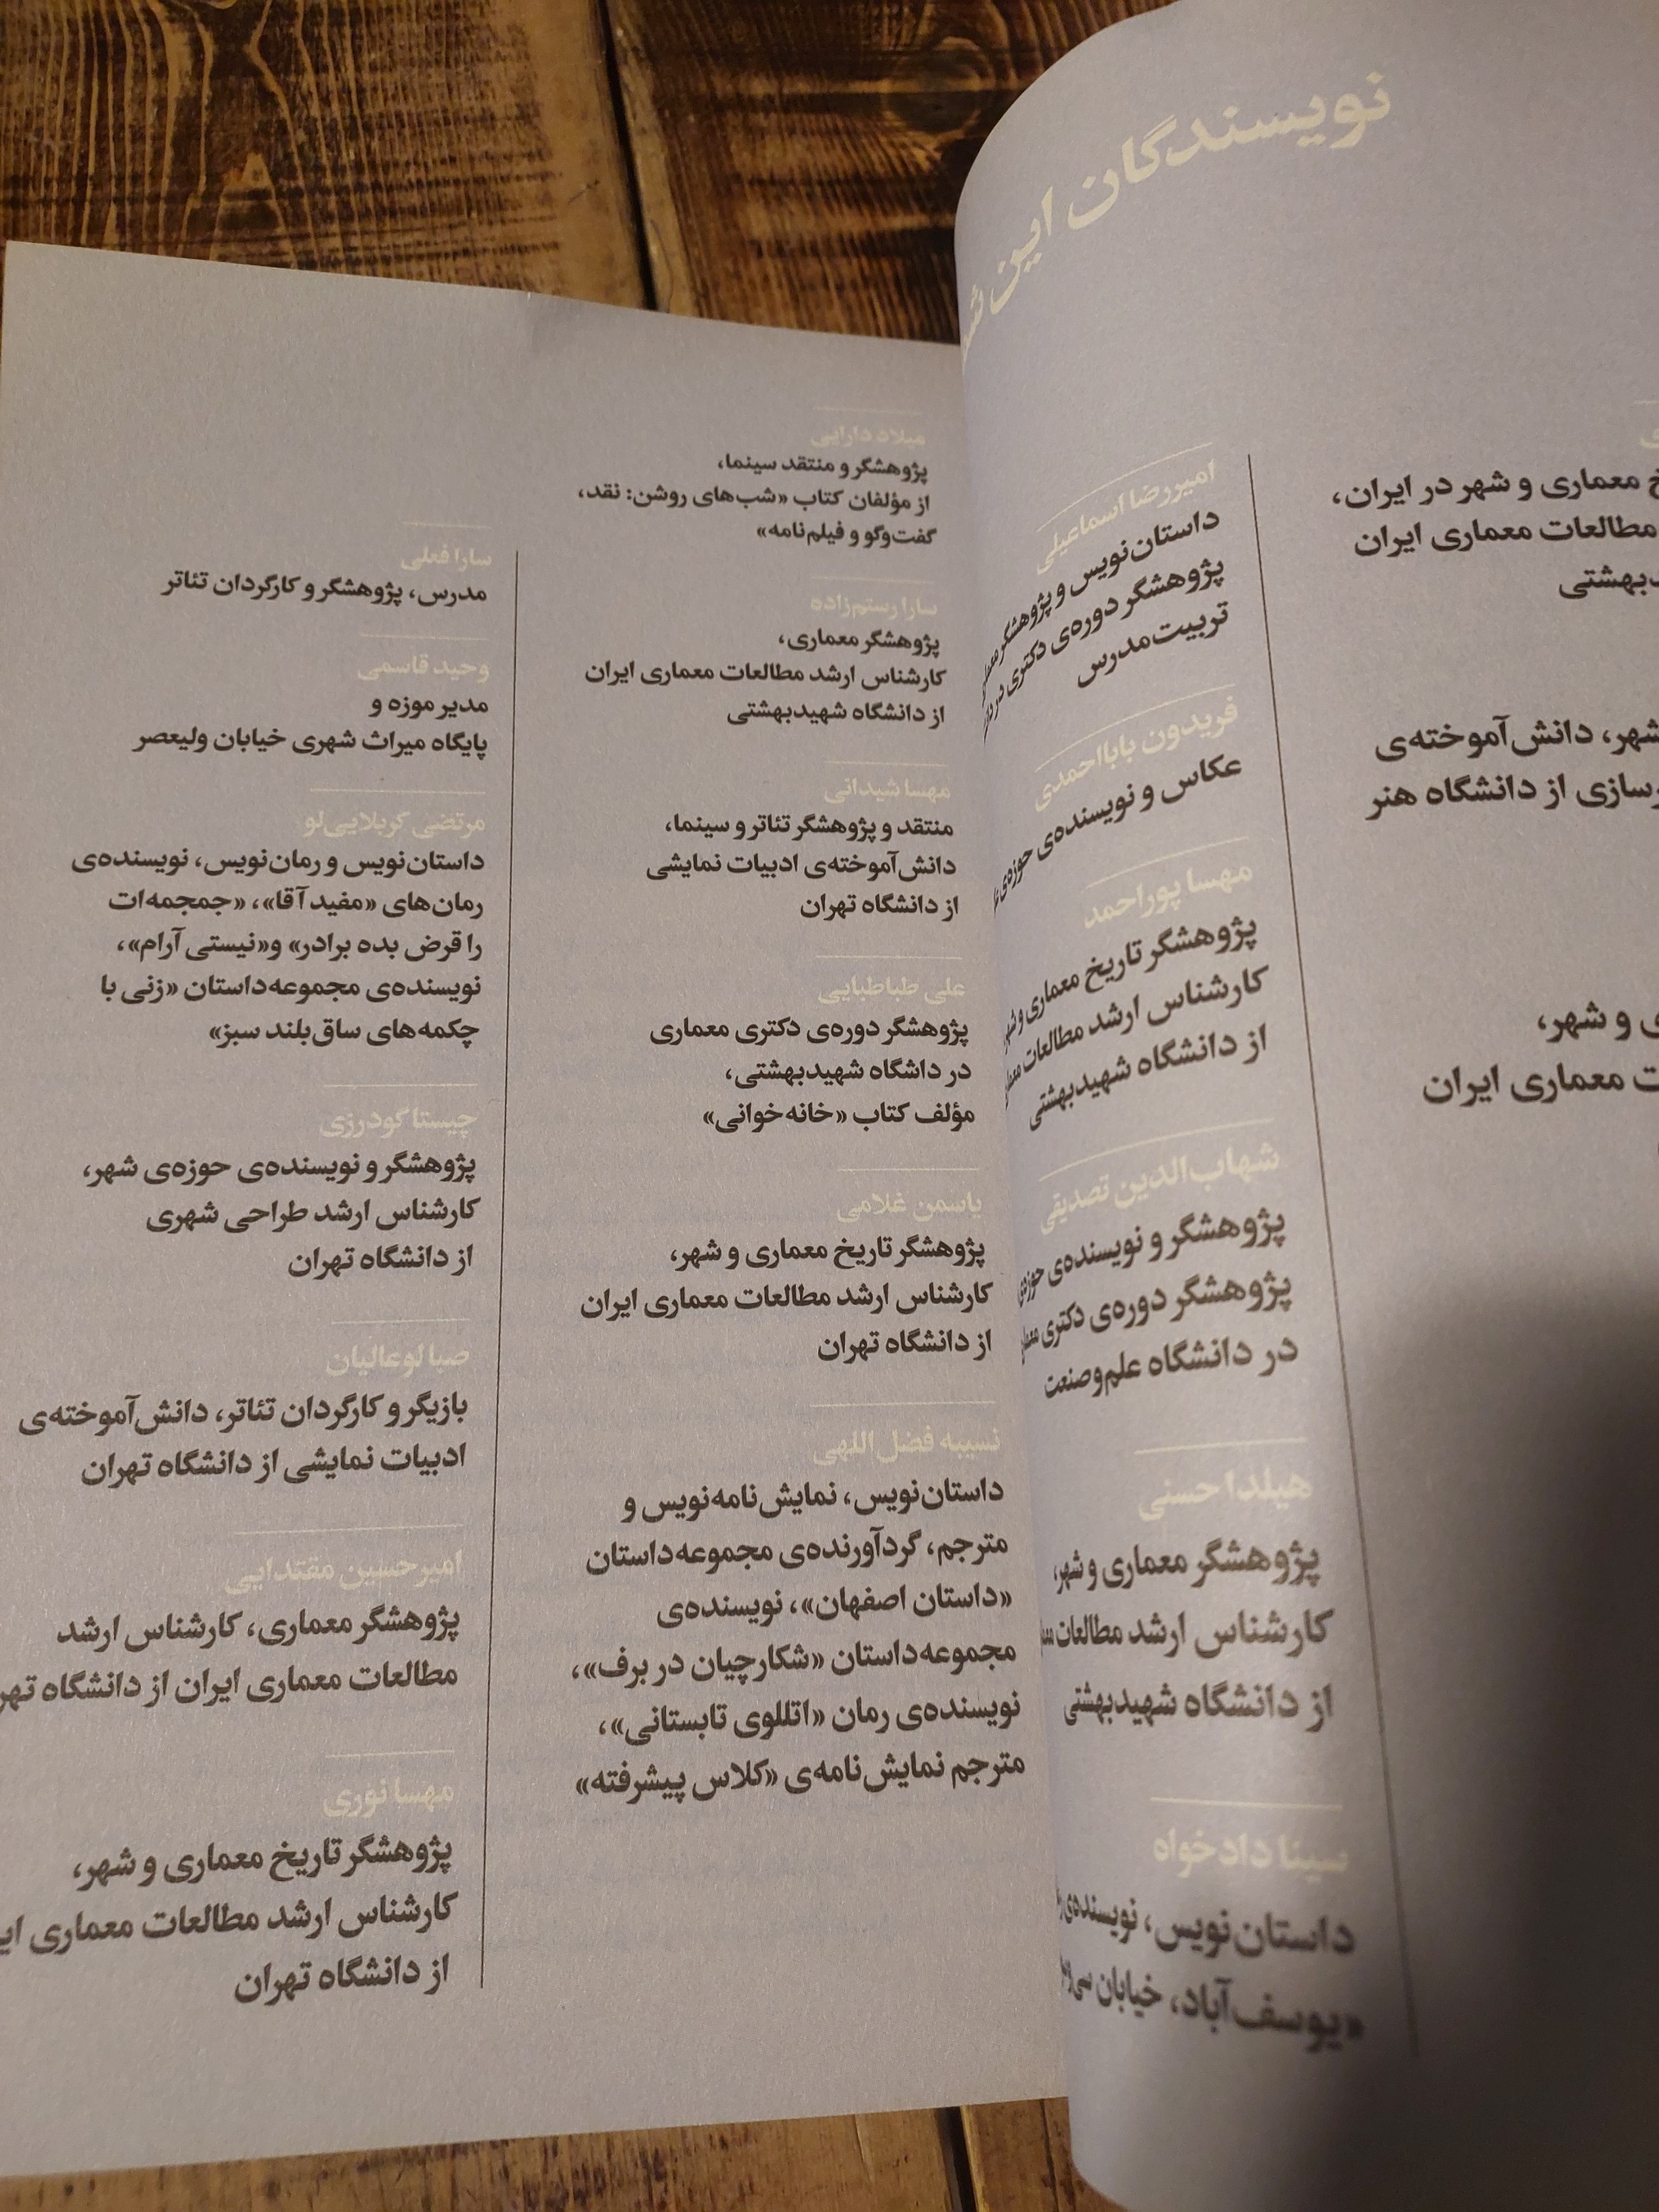 نویسندگان این
معماری و شهر در ایران،
مطالعات معماری ایران
شهر، دانش‌آموخته‌ی
از دانشگاه هنر
و شهر،
معماری ایران
امیررضا اسماعیلی
داستان‌نویس و پژوهشگر
پژوهشگر دوره‌ی دکتری در
تربیت‌مدرس
فریدون بابااحمدی
عکاس و نویسنده‌ی حوزه‌ی
مهسا پوراحمد
پژوهشگر تاریخ معماری و شهر
کارشناس ارشد مطالعات
از دانشگاه شهیدبهشتی
شهاب‌الدین تصدیقی
پژوهشگر و نویسنده‌ی حوزه‌ی
پژوهشگر دوره‌ی دکتری
در دانشگاه علم‌وصنعت
هیلدا حسنی
پژوهشگر معماری و شهر،
کارشناس ارشد مطالعات
از دانشگاه شهیدبهشتی
سینا دادخواه
داستان‌نویس، نویسنده‌ی
«یوسف‌آباد، خیابان
میلاد دارایی
پژوهشگر و منتقد سینما،
از مؤلفان کتاب «شب‌های روشن: نقد،
گفت‌وگو و فیلم‌نامه»
سارا رستم‌زاده
پژوهشگر معماری،
کارشناس ارشد مطالعات معماری ایران
از دانشگاه شهیدبهشتی
مهسا شیدانی
منتقد و پژوهشگر تئاتر و سینما،
دانش‌آموخته‌ی ادبیات نمایشی
از دانشگاه تهران
علی طباطبایی
پژوهشگر دوره‌ی دکتری معماری
در داشگاه شهیدبهشتی،
مؤلف کتاب «خانه‌خوانی»
یاسمن غلامی
پژوهشگر تاریخ معماری و شهر،
کارشناس ارشد مطالعات معماری ایران
از دانشگاه تهران
نسیبه فضل‌اللهی
داستان‌نویس، نمایش‌نامه‌نویس و
مترجم، گردآورنده‌ی مجموعه‌داستان
«داستان اصفهان»، نویسنده‌ی
مجموعه‌داستان «شکارچیان در برف»،
نویسنده‌ی رمان «اتللوی تابستانی»،
مترجم نمایش‌نامه‌ی «کلاس پیشرفته»
سارا فعلی
مدرس، پژوهشگر و کارگردان تئاتر
وحید قاسمی
مدیر موزه و
پایگاه میراث شهری خیابان ولیعصر
مرتضی کربلایی‌لو
داستان‌نویس و رمان‌نویس، نویسنده‌ی
رمان‌های «مفید آقا»، «جمجمه‌ات
را قرض بده برادر» و«نیستی آرام»،
نویسنده‌ی مجموعه‌داستان «زنی با
چکمه‌های ساق‌بلند سبز»
چیستا گودرزی
پژوهشگر و نویسنده‌ی حوزه‌ی شهر،
کارشناس ارشد طراحی شهری
از دانشگاه تهران
صبا لوعالیان
بازیگر و کارگردان تئاتر، دانش‌آموخته‌ی
ادبیات نمایشی از دانشگاه تهران
امیرحسین مقتدایی
پژوهشگر معماری، کارشناس ارشد
مطالعات معماری ایران از دانشگاه
مهسا نوری
پژوهشگر تاریخ معماری و شهر،
کارشناس ارشد مطالعات معماری
از دانشگاه تهران